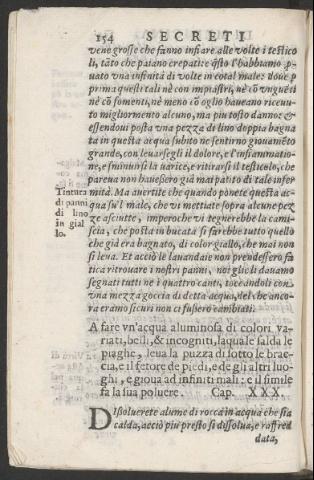 154 SECRETI
vene grosse che fanno infiare alle volte i testico
li, tãto che paiano crepati: e q̃sto l'habbiamo ꝓ-
uato vna infinità di volte in cotal male: doue p
prima questi tali nè con impiastri, nè cõ vnguẽti
nè cõ fomenti, nè meno cõ oglio haueano riceuu-
to miglioramento alcuno, ma piu tosto danno: &
essendoui posta vna pezza di lino doppia bagna
ta in questa acqua subito ne sentirno giouamẽto
grande, con leuarsegli il dolore, e l'infiammatio-
ne, e sminuirsi la uarice, e ritirarsi il testicolo, che
pareua non hauessero già mai patito di tale infer
mità. Ma auertite che quando ponete questa ac-
qua su'l male, che vi mettiate sopra alcune pez
ze asciutte, imperoche vi tegnerebbe la cami-
scia, che posta in bucata si farebbe tutto quello
che già era bagnato, di color giallo, che mai non
si leua. Et acciò le lauandaie non prendessero fa
tica ritrouare i nostri panni, noi glie li dauamo
segnati tutti ne i quattro canti, toccandoli con
vna mezza goccia di detta acqua, del che anco-
ra eramo sicuri non ci fussero cambiati.
Tintura
di panni
di lino
in gial
lo.
A fare vn'acqua aluminosa di colori va-
riati, belli, & incogniti, laquale salda le
piaghe, leua la puzza di sotto le brac-
cia, e il fetore de piedi, e de gli altri luo-
ghi, e gioua ad infiniti mali: e il simile
fa la sua poluere. Cap. XXX.
Dissoluerete alume di rocca in acqua che sia
calda, acciò piu presto si dissolua, e raffred
data,